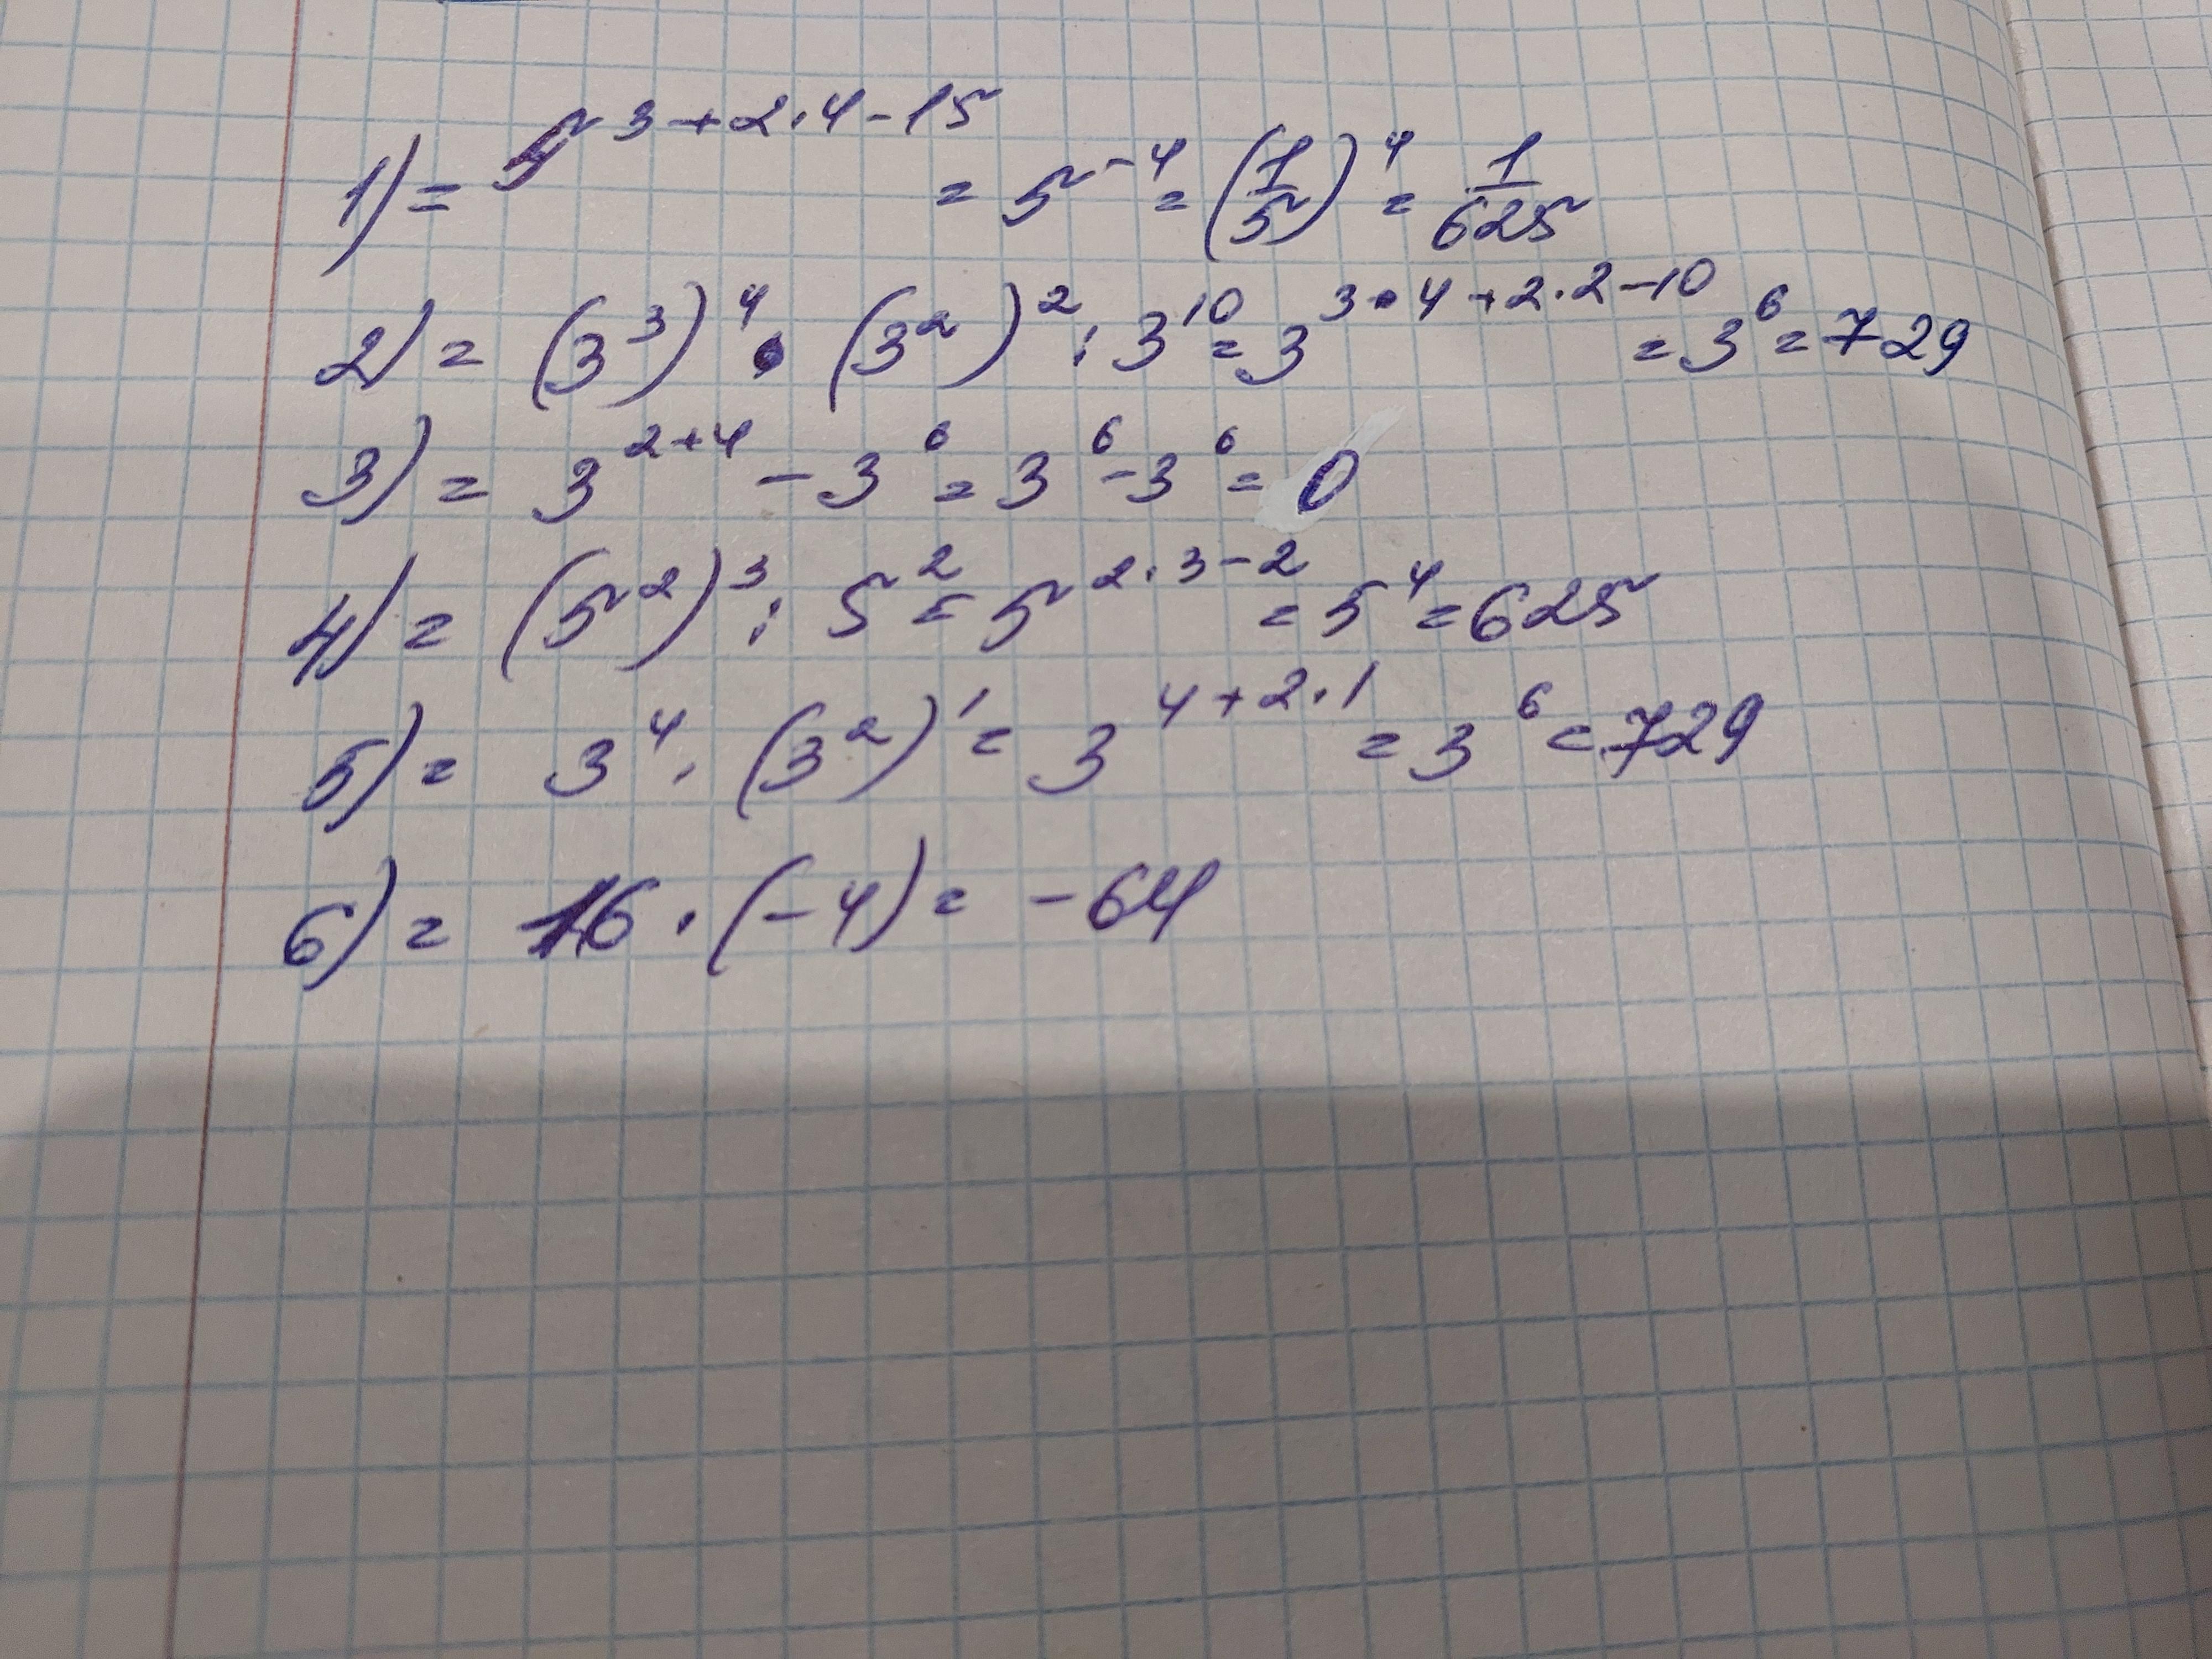 1) = 5^{3+2·4-15} = 5^{-4} = (1/5)^4 = 1/625
2) = (3^3)^4 · (3^2)^2 : 3^{10} = 3^{3·4+2·2-10} = 3^6 = 729
3) = 3^{2+4} - 3^6 = 3^6 - 3^6 = 0
4) = (5^2)^3 : 5^2 = 5^{2·3-2} = 5^4 = 625
5) = 3^4 · (3^2)^1 = 3^{4+2·1} = 3^6 = 729
6) = 16 · (-4) = -64